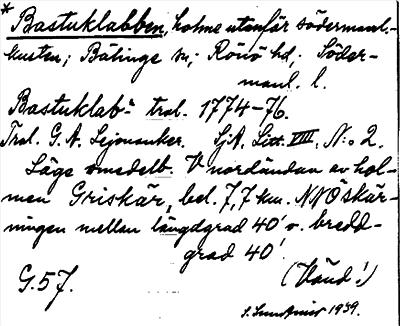 * Bastuklabben, holme utanför södermanl.-
kusten; Bälinge sn; Rönö hd. Söder-
manl. l.
Bastuklabn trol. 1774-76.
Trol. G. A. Lejonanker. SjA, Litt. VIII, N:o 2.
Läge omedelb. V nordändan av hol-
men Griskär, bel. 7,7 km. NNÖ skär-
ningen mellan längdgrad 40' o. bredd-
grad 40'.
G. 57. (Vänd!)
1939.